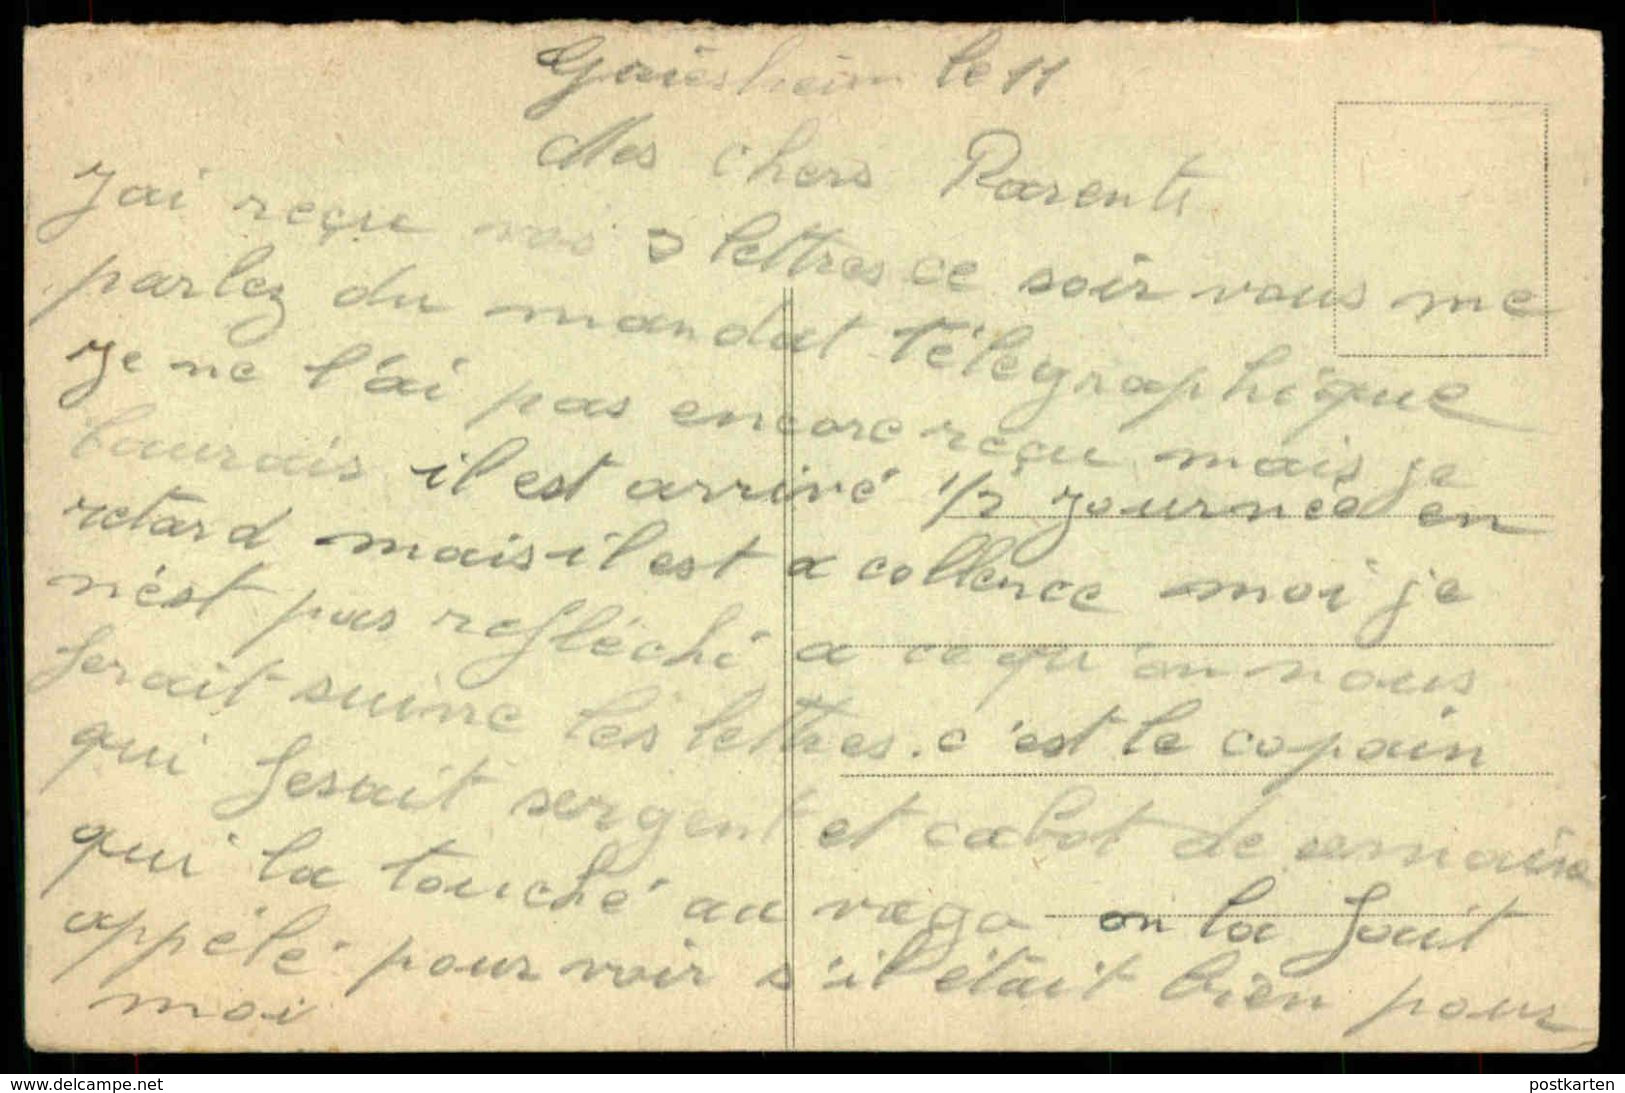 Griesheim le 11
Mes chers Parents
J'ai reçu vos 2 lettres ce soir vous me
parlez du mandat télégraphique
Je ne l'ai pas encore reçu mais je
il est arrivé 1/2 journée en
retard mais il est a moi je
n'est pas refléchi a ce qu'on nous
ferait suivre les lettres. c'est le copain
qui fesait sergent et cabot de semaine
qui la touché au vago on la fait
appélé pour voir s'il était bien pour
moi
www.delcampe.net
postkarten